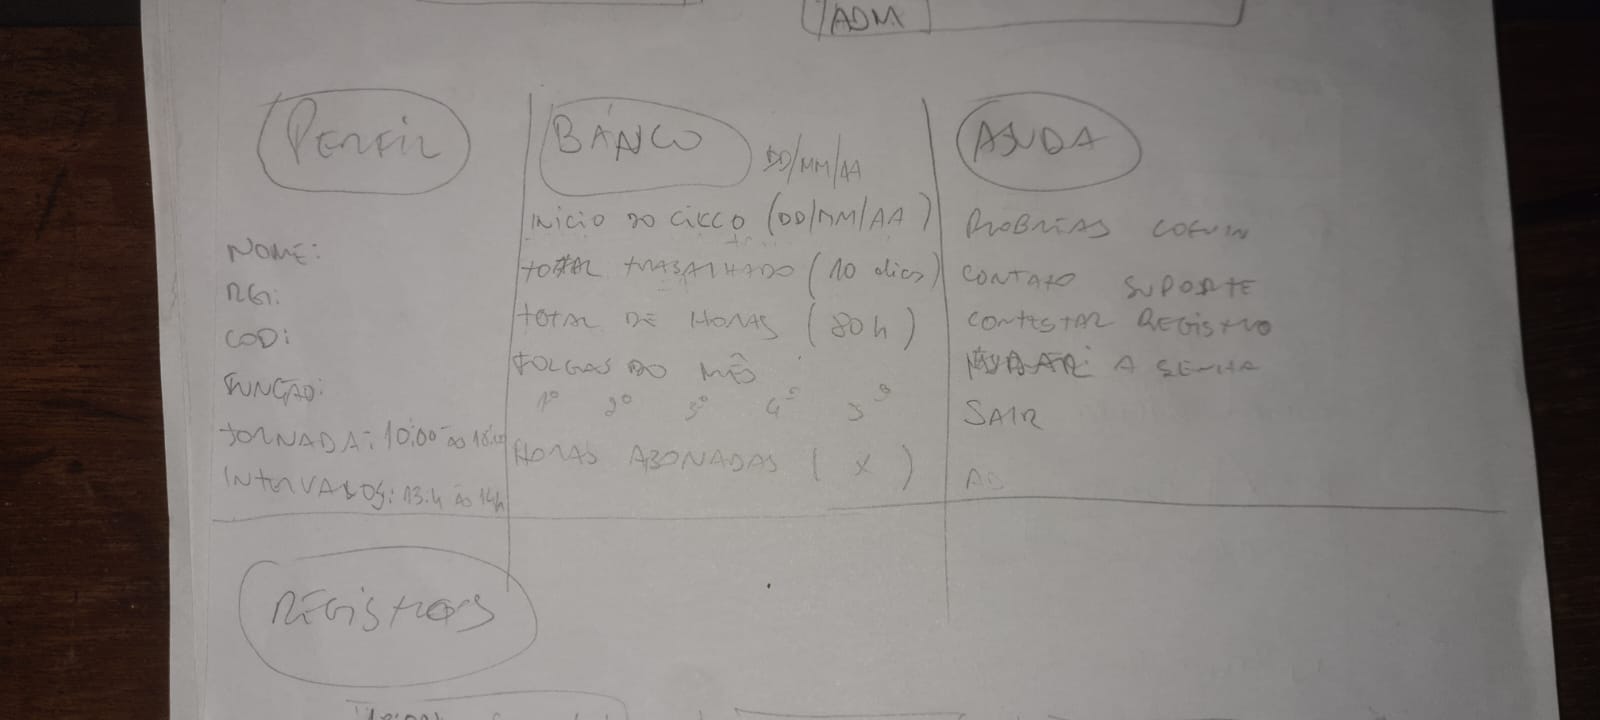 /ADM
PERFIL
NOME:
RG:
COD:
FUNÇÃO:
JORNADA: 10:00 ÀS 18:00
INTERVALOS: 13:h ÀS 14h
BANCO
DD/MM/AA
INICIO DO CICLO (DD/MM/AA)
TOTAL TRABALHADO (10 dias)
TOTAL DE HORAS (80h)
FOLGAS DO MÊS
1º 2º 3º 4º 5º
HORAS ABONADAS ( X )
AJUDA
PROBLEMAS LOGIN
CONTATO SUPORTE
CONTESTAR REGISTRO
MUDAR A SENHA
SAIR
AD
REGISTROS